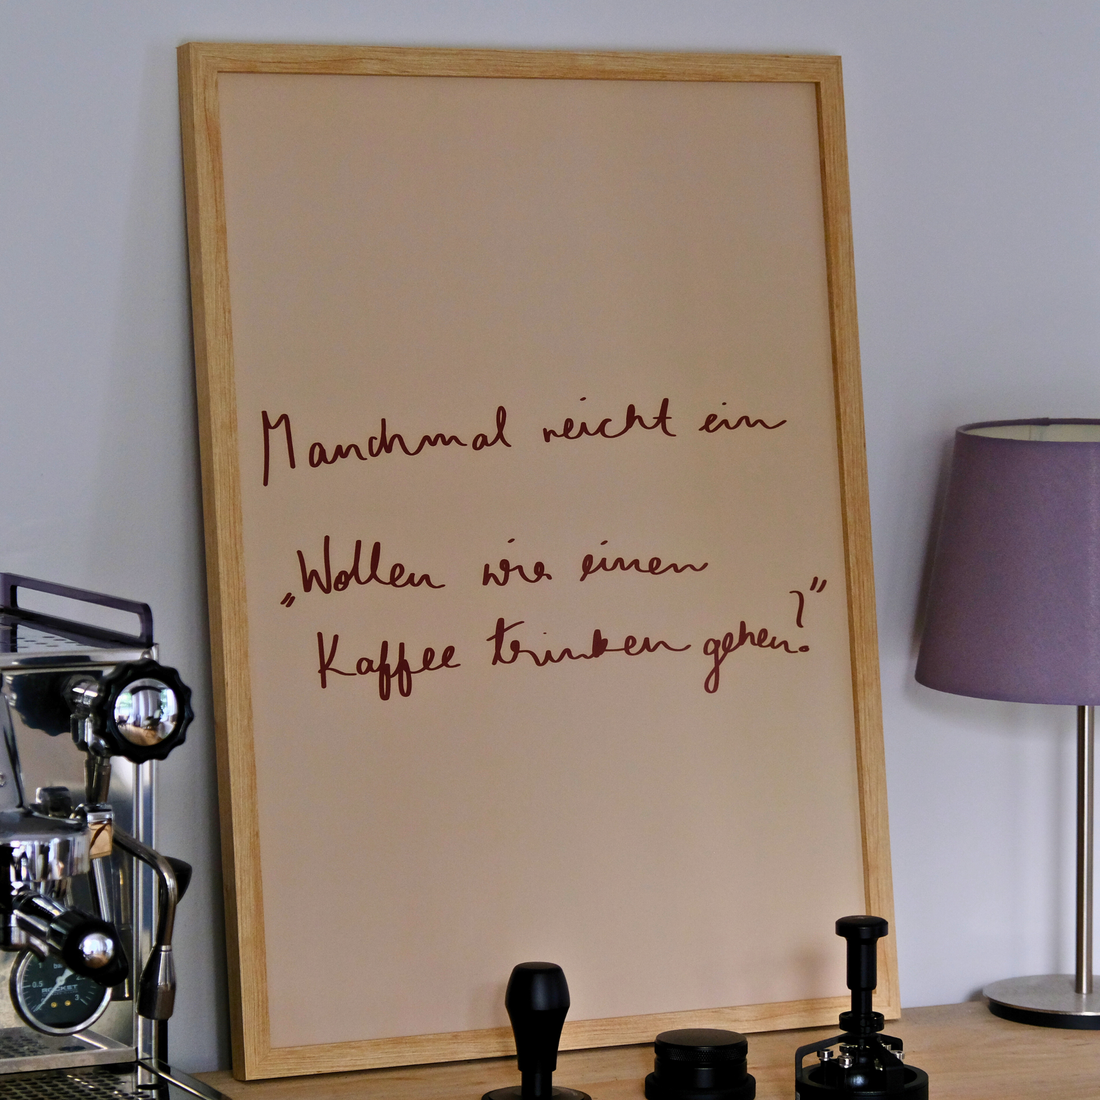 Manchmal reicht ein
„Wollen wir einen
Kaffee trinken gehen?”
bar
0.5
3
ROCKET